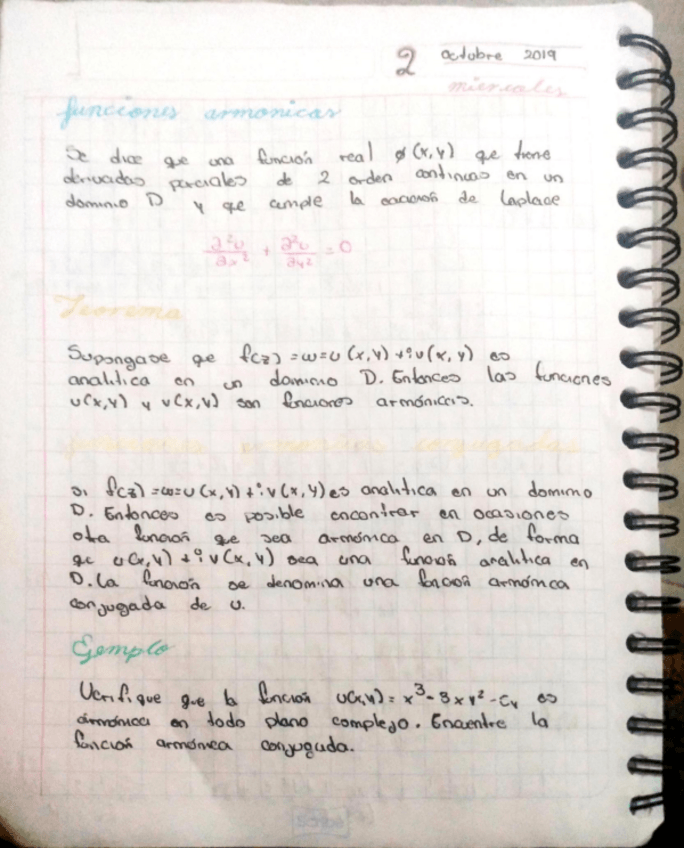 2 octubre 2019
miercoles
funciones armonicas
Se dice que una función real ø (x,y) que tiene
derivadas parciales de 2 orden continuas en un
dominio D y que cumple la ecuación de Laplace
∂²u/∂x² + ∂²u/∂y² = 0
Teorema
Supongase que f(z) = w = u (x,y) + i v (x, y) es
analitica en un dominio D. Entonces las funciones
u(x,y) y v(x,y) son funciones armónicas.
funciones armonicas conjugadas
Si f(z) = w = u (x,y) + i v (x,y) es analitica en un dominio
D. Entonces es posible encontrar en ocasiones
otra función que sea armónica en D, de forma
que u(x,y) + i v (x,y) sea una función analitica en
D. La función se denomina una función armónica
conjugada de u.
Ejemplo
Verifique que la función u(x,y) = x³ - 3xy² - 5y es
armónica en todo plano complejo. Encuentre la
función armónica conjugada.